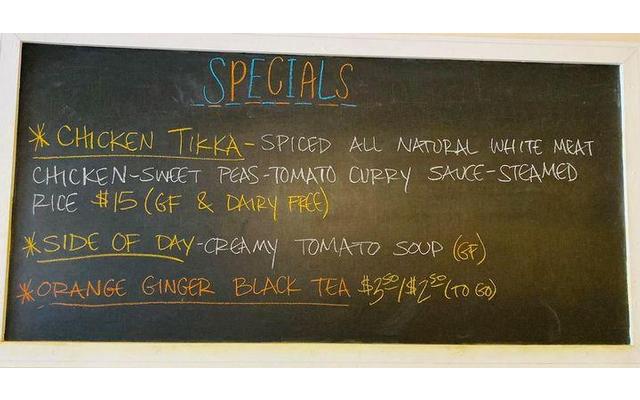 SPECIALS
* CHICKEN TIKKA-SPICED ALL NATURAL WHITE MEAT
CHICKEN-SWEET PEAS-TOMATO CURRY SAUCE-STEAMED
RICE $15 (GF & DAIRY FREE)
* SIDE OF DAY-CREAMY TOMATO SOUP (GF)
* ORANGE GINGER BLACK TEA $3.50/$2.50 (TO GO)